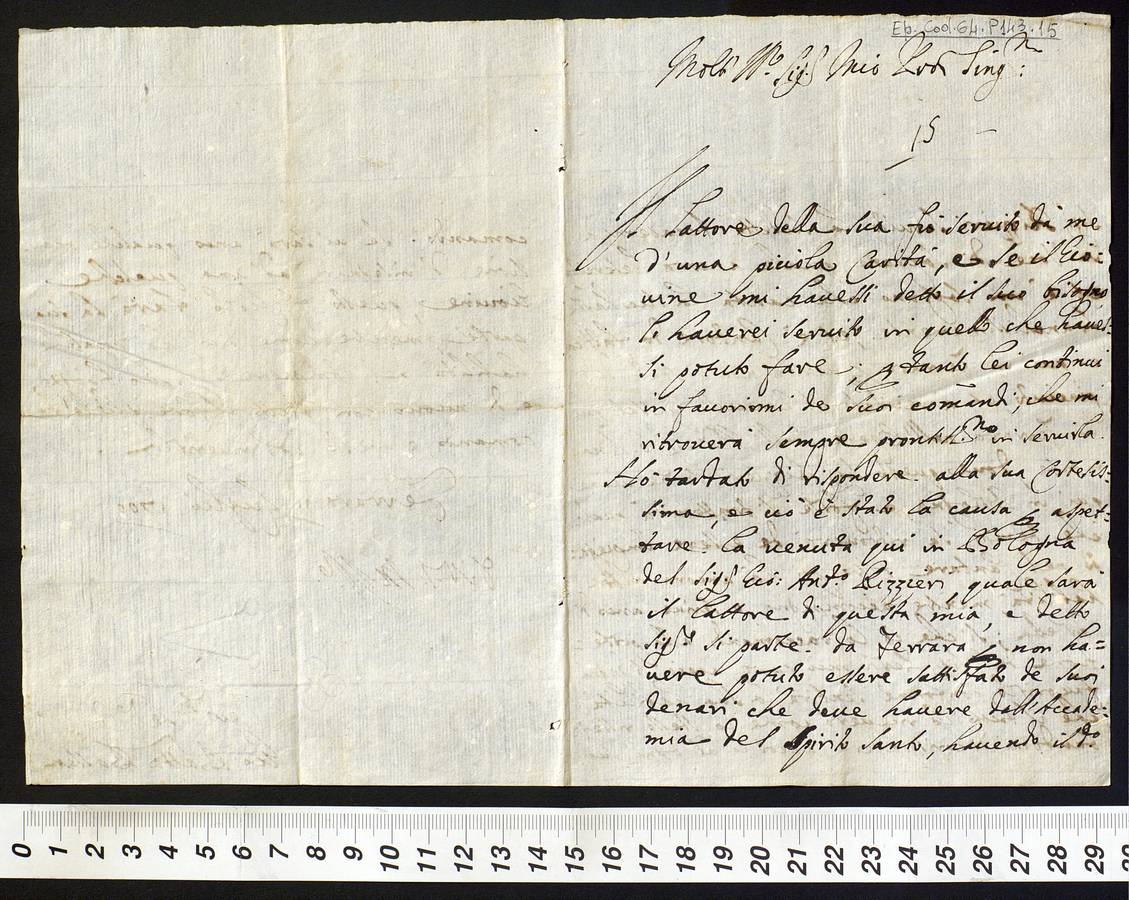 Ep. Cod. 64. P143. 15
Molt' Ill.º Sig.r Mio Pron Sing.n:
15
Il Lattore della sua fú seruito dà me
d'una piciola Carità, e se il Gio:
uine mi hauessi detto il suo bisogno
lo hauerei seruito in quello che haues:
si potuto fare; p tanto lei continui
in fauorirmi de suoi comandi, che mi
ritrouerà sempre prontiss.mo in seruirla.
Hò tardato di rispondere alla sua Cortesis:
sima, e ciò è stato la causa p aspet:
tare la uenuta qui in Bologna
del Sig.r Gio: Ant.o Rizzieri, quale sarà
il Lattore di questa mia, e detto
Sig.re si parte da Ferrara p non ha=
uere potuto essere sattisfato de suoi
denari che deue hauere dall'Accade:
mia del Spirito Santo, hauendo il d.o
0 1 2 3 4 5 6 7 8 9 10 11 12 13 14 15 16 17 18 19 20 21 22 23 24 25 26 27 28 29